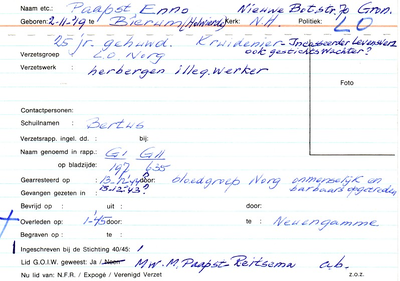 Naam etc.: Paapst Enno Nieuwe Botstr. 70 Gron.
Geboren: 2-11-'19 te Bierum (Holwierde) Kerk: N.H. Politiek: LO
25 jr. gehuwd. Kruidenier - Incasseerder Levensverz
ook gestichtswachter?
Verzetsgroep L.O. Norg
Verzetswerk : herbergen illeg. werker
Foto
Contactpersonen:
Schuilnamen : Bertus
Verzetsrapp. ingel. dd. : bij:
Naam genoemd in rapp.: GI GII
op bladzijde: 197 635
Gearresteerd op : 13-12-'44? door: bloedgroep Norg onmenselijk en
Gevangen gezeten in : 15-12-'43? barbaars opgetreden
Bevrijd op : uit : door:
Overleden op: 1-'45 door: te : Neuengamme
Begraven op : te :
Ingeschreven bij de Stichting 40/45:
Lid G.O.I.W. geweest: Ja / Neen Mw. M. Paapst-Reitsema a.b.
Nu lid van: N.F.R. / Expogé / Verenigd Verzet z.o.z.